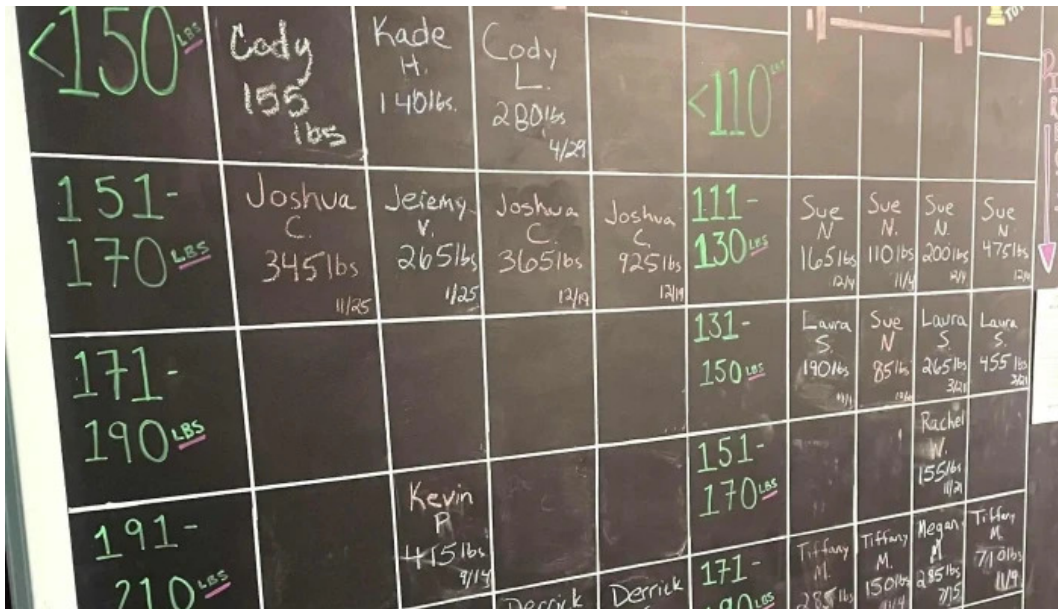 <150 LBS
Cody
155
lbs
Kade
H.
140lbs.
Cody
L.
280lbs
4/29
<110 LBS
TOT
151-
170 LBS
Joshua
C.
345lbs
11/25
Jeremy
V.
265lbs
1/25
Joshua
C.
365lbs
12/19
Joshua
C.
925lbs
12/19
111-
130 LBS
Sue
N
165lbs
12/4
Sue
N.
110lbs
11/4
Sue
N.
200lbs
12/4
Sue
N
475lbs
171-
190 LBS
131-
150 LBS
Laura
S.
190lbs
Sue
N
85lbs
Laura
S.
265lbs
3/21
Laura
S.
455 lbs
3/21
151-
170 LBS
Rachel
W.
155lbs
11/21
191-
210 LBS
Kevin
P.
415lbs
9/14
Derrick
Derrick
171-
190 LBS
Tiffany
M.
285lbs
Tiffany
M.
150lbs
11/4
Megan
M
285lbs
7/15
Tiffany
M.
710lbs
11/9